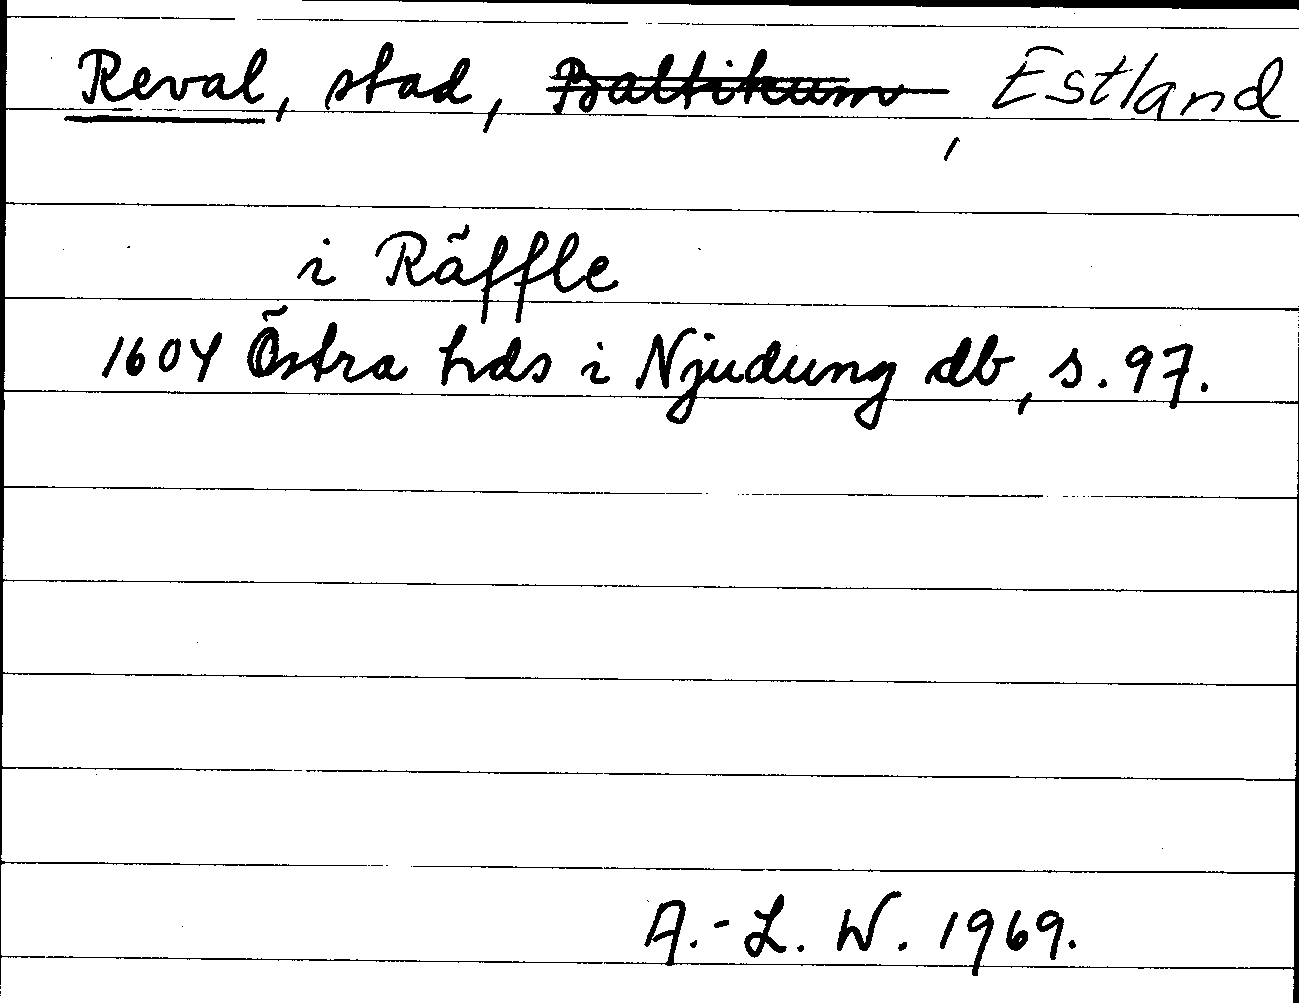 Reval, stad, Baltikum, Estland
i Räffle
1604 Östra hds i Njudung db, s. 97.
A.-L. W. 1969.